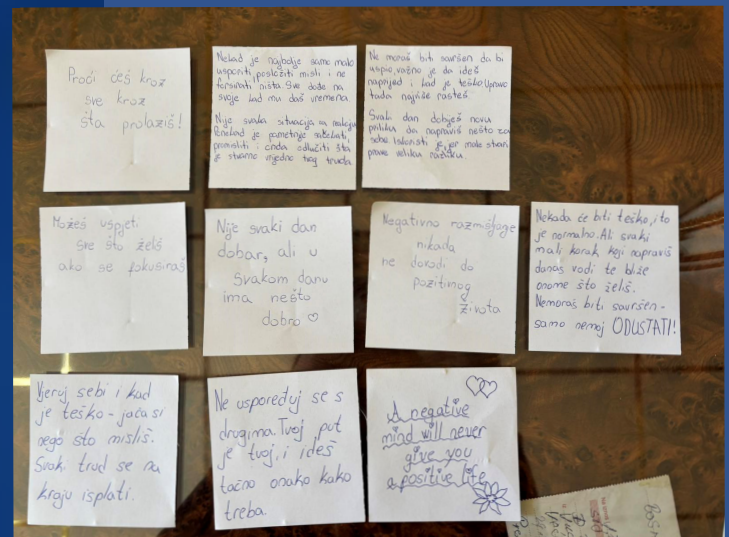 Proći ćeš kroz
sve kroz
šta prolaziš!
Nekad je najbolje samo malo
usporiti, posložiti misli i ne
forsirati ništa. Sve dođe na
svoje kad mu daš vremena.
Nije svaka situacija za reakciju.
Ponekad je pametnije sačekati,
promisliti i onda odlučiti šta
je stvarno vrijedno tvog truda.
Ne moraš biti savršen da bi
uspio, važno je da ideš
naprijed i kad je teško. Upravo
tada najviše rasteš.
Svaki dan dobiješ novu
priliku da napraviš nešto za
sebe. Iskoristi je, jer male stvari
prave veliku razliku.
Možeš uspjeti
sve što želiš
ako se fokusiraš
Nije svaki dan
dobar, ali u
svakom danu
ima nešto
dobro ♡
Negativno razmišljanje
nikada
ne dovodi do
pozitivnog
života
Nekada će biti teško, i to
je normalno. Ali svaki
mali korak koji napraviš
danas vodi te bliže
onome što želiš.
Nemoraš biti savršen-
samo nemoj ODUSTATI!
Vjeruj sebi i kad
je teško - jača si
nego što misliš.
Svaki trud se na
kraju isplati.
Ne uspoređuj se s
drugima. Tvoj put
je tvoj, i ideš
tačno onako kako
treba.
A negative
mind will never
give you
a positive life